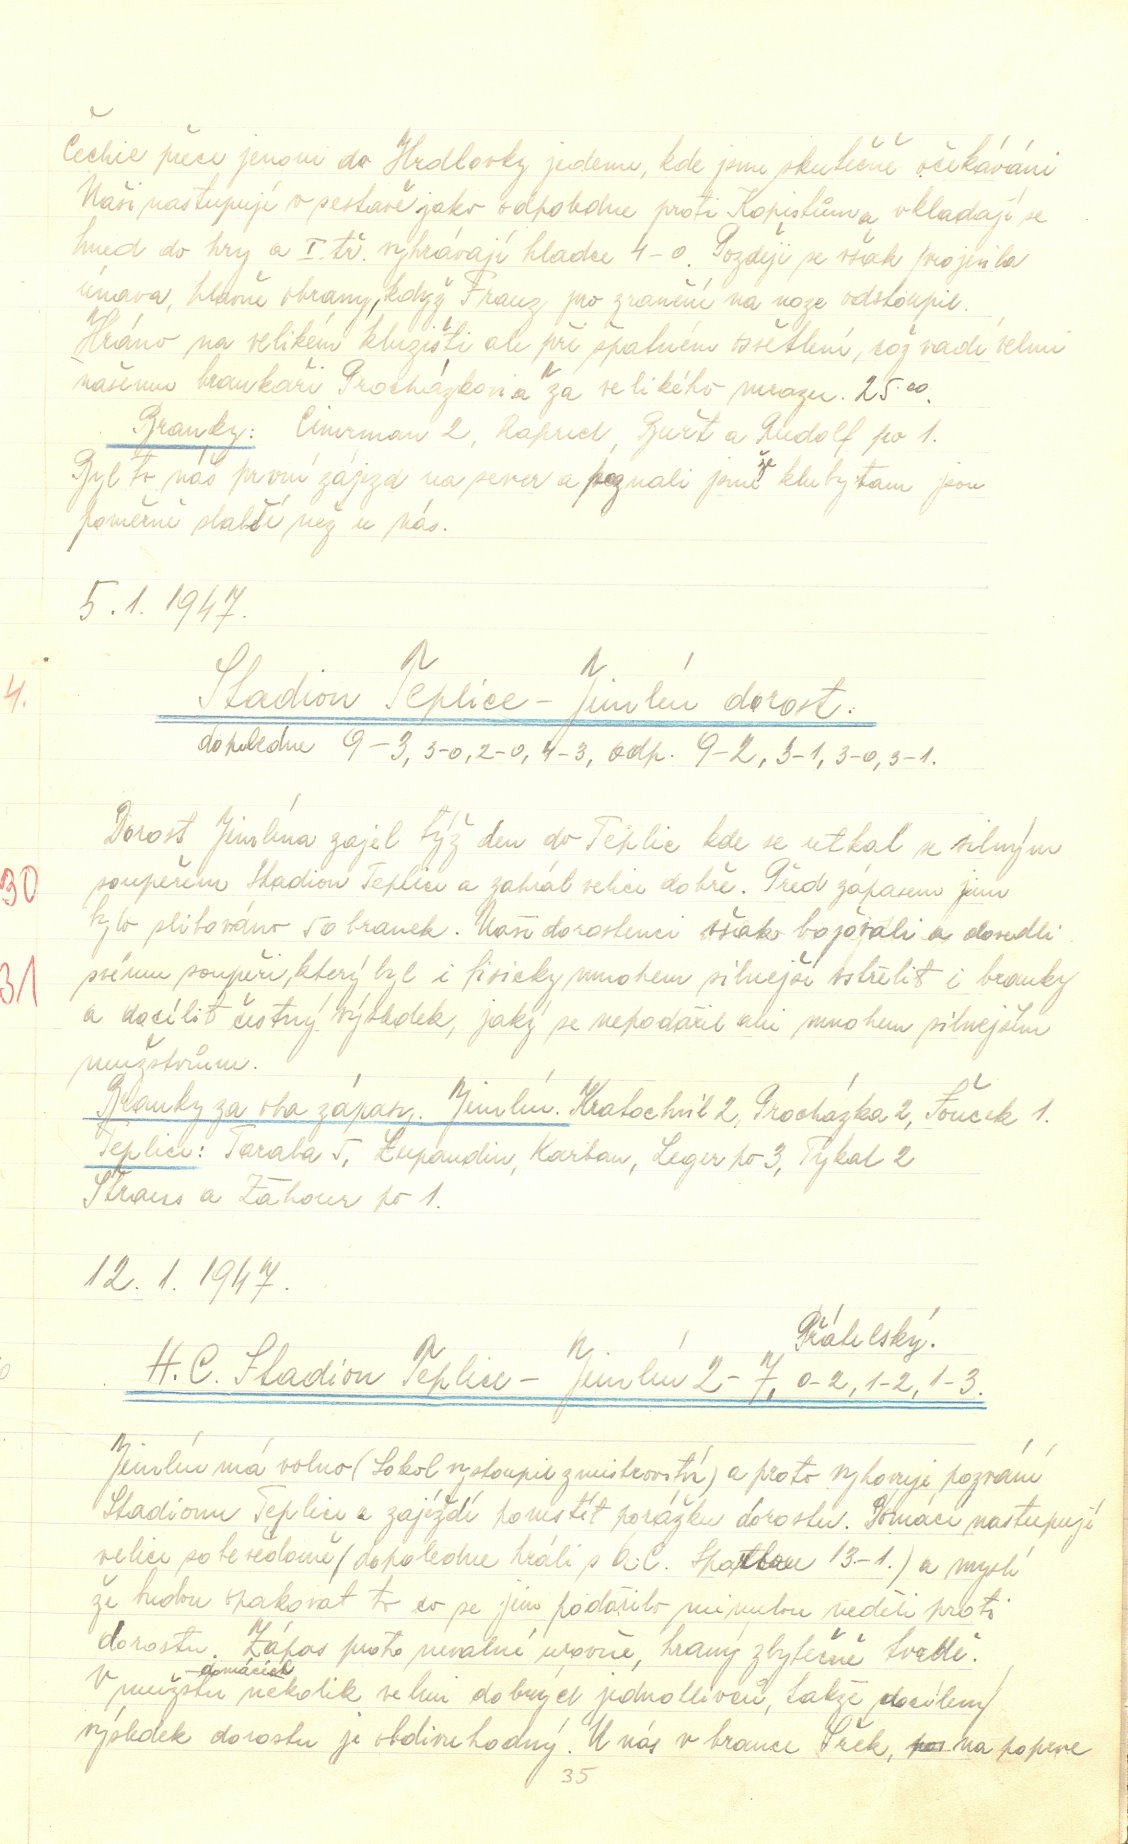 Čechie přece jenom do Hrdlovky jedeme, kde jsme skutečně očekáváni
Naši nastupují v sestavě jako odpoledne proti Kopistům a vkladají se
hned do hry a I. tř. vyhrávají hladce 4-0. Později se však projevila
únava, hlavně obrany, když Franz pro zranění na noze odstoupil.
Hráno na velikém kluzišti ale při špatném osvětlení, což vadí velmi
našemu brankaři Procházkovi a za velikého mrazu. 25.00.
Branky: Cimrman 2, Kaprcd, Burt a Rudolf po 1.
Byl to náš první zájezd na sever a poznali jsme že kluby tam jsou
poměrně slabší než u nás.
5. 1. 1947.
4.
Stadion Teplice - Jimlín dorost.
dopoledne 9-3, 3-0, 2-0, 4-3, odp. 9-2, 3-1, 3-0, 3-1.
Dorost Jimlína zajel týž den do Teplic kde se utkal se silným
30 soupeřem Stadion Teplice a zahrál velice dobře. Před zápasem jim
bylo slibováno 50 branek. Naši dorostenci však bojovali a dovedli
31 svému soupeři, který byl i fisicky mnohem silnejší vstřelit i branky
a docílit čestný výsledek, jaký se nepodařil ani mnohem silnejším
mužstvům.
Branky za oba zápasy. Jimlín. Kratochvíl 2, Procházka 2, Souček 1.
Teplice: Taraba 5, Župandin, Karban, Leger po 3, Tykal 2
Straus a Záhour po 1.
12. 1. 1947.
Přátelský.
H.C. Stadion Teplice - Jimlín 2-7, 0-2, 1-2, 1-3.
Jimlín má volno (Sokol vystoupil z mistrovství) a proto vyhovuje pozvání
Stadionu Teplice a zajíždí pomstít porážku dorostu. Domácí nastupují
velice sebevědomě (dopoledne hráli s A.C. Spartou 13-1.) a myslí
že budou opakovat to co se jim podařilo minulou neděli proti
dorostu. Zápas proto nevalné úrovně, hraný zbytečně tvrdě.
V mužstvu domácích několik velmi dobrých jednotlivců, takže docílený
výsledek dorostu je obdivuhodný. U nás v brance Srěk, na poprve
35